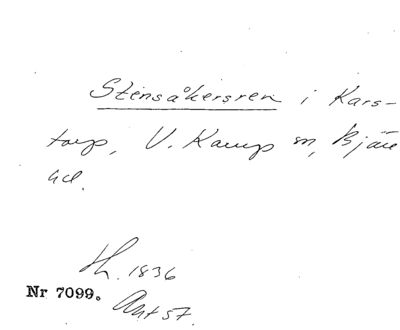 Stensåkersren i Kars-
torp, V. Karup sn, Bjäre
hd.
Th. 1836
Nr 7099.
Ant 57.